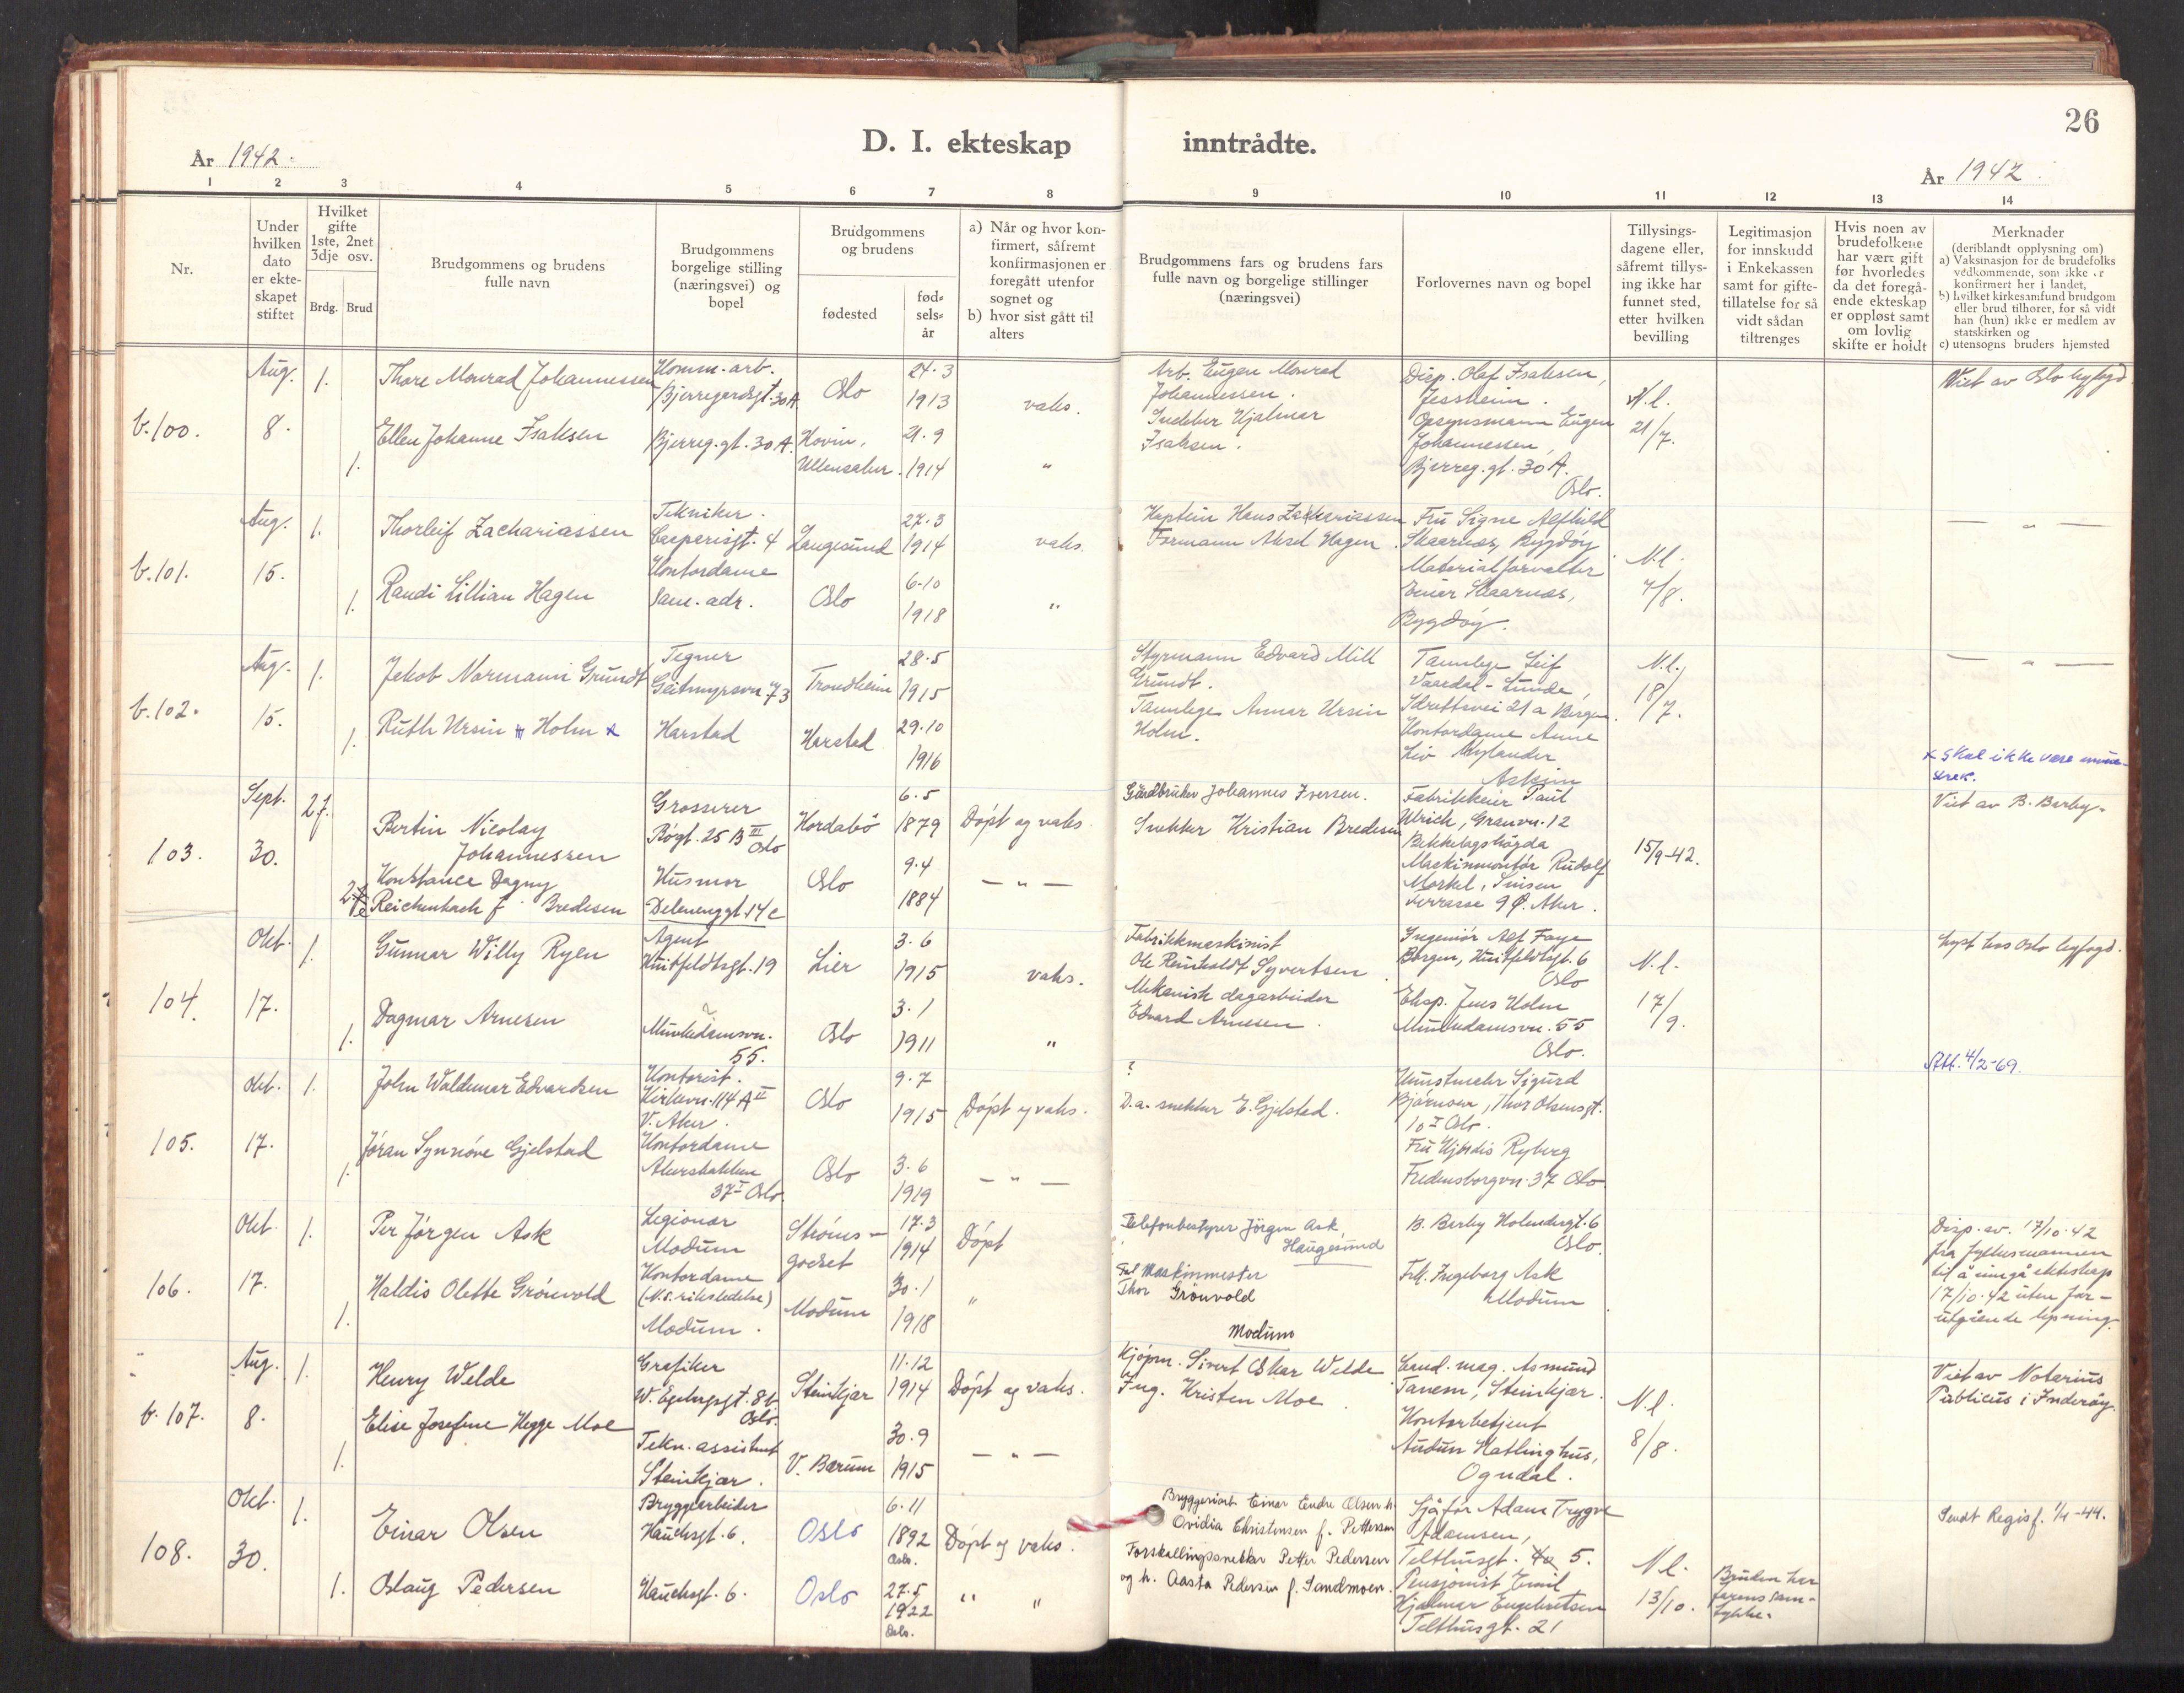 26
D. I. ekteskap inntrådte.
År 1942.
År 1942.
1 2 3 4 5 6 7 8 9 10 11 12 13 14
Nr.
Under
hvilken
dato
er ekte-
skapet
stiftet
Hvilket
gifte
1ste, 2net
3dje osv.
Brdg. Brud
Brudgommens og brudens
fulle navn
Brudgommens
borgelige stilling
(næringsvei) og
bopel
Brudgommens
og brudens
fødested
fød-
sels-
år
a) Når og hvor kon-
firmert, såfremt
konfirmasjonen er
foregått utenfor
sognet og
b) hvor sist gått til
alters
Brudgommens fars og brudens fars
fulle navn og borgelige stillinger
(næringsvei)
Forlovernes navn og bopel
Tillysings-
dagene eller,
såfremt tillys-
ing ikke har
funnet sted,
etter hvilken
bevilling
Legitimasjon
for innskudd
i Enkekassen
samt for gifte-
tillatelse for så
vidt sådan
tiltrenges
Hvis noen av
brudefolkene
har vært gift
før hvorledes
da det foregå-
ende ekteskap
er oppløst samt
om lovlig
skifte er holdt
Merknader
(deriblandt opplysning om)
a) Vaksinasjon for de brudefolks
vedkommende, som ikke er
konfirmert her i landet,
b) hvilket kirkesamfund brudgom
eller brud tilhører, for så vidt
han (hun) ikke er medlem av
statskirken og
c) utensogns bruders hjemsted
b.100.
Aug.
8.
1.
1.
Thore Monrad Johannessen
Ellen Johanne Isaksen
Komm.-arb.
Bjerregardsgt. 30 A
Bjerreg.gt. 30 A.
Oslo
Hovin,
Ullensaker.
24.3
1913
21.9
1914
vaks.
"
Arb. Eugen Monrad
Johannessen.
Snekker Hjalmar
Isaksen.
Disp. Olaf Isaksen,
Jessheim.
Opsynsmann Eugen
Johannessen,
Bjerreg.gt. 30 A.
Oslo.
N.l.
21/7.
Viet av Oslo byfogd.
b.101.
Aug.
15.
1.
1.
Thorleif Zachariassen
Randi Lillian Hagen
Tekniker.
Casparisgt. 4
Kontordame
Sam. adr.
Langesund
Oslo
27.3
1914
6-10
1918
vaks.
"
Kaptein Hans Zachariassen
Formann Aksel Hagen.
Fru Signe Alfhild
Skaarnæs, Bygdøy
Materialforvalter
Einar Skaarnæs,
Bygdøy.
N.l.
4/8.
— " —
b.102.
Aug.
15.
1.
1.
Jakob Normann Grundt
Ruth Ursin Holm x
Tegner
Geitmyrsvn. 73
Harstad
Trondheim
Harstad
28.5
1915
29.10
1916
Styrmann Edvard Mill
Grundt.
Tannlege Annar Ursin
Holm.
Tannlege Leif
Vaardal-Lunde,
Idrettsvei 21 a Bergen.
Kontordame Anne
Liv Nylander
Askim
N.l.
18/7.
— " —
x Skal ikke være
strek.
103.
Sept.
30.
2 g.
Bertin Nicolay
Johannessen
Konstance Dagny
Reichenbach f. Bredesen
Grosserer
Bøgt. 25 B III
Oslo
Husmor
Delenenggt. 14 c
Hordabö
Oslo
6.5
1879
9.4
1884
Döpt og vaks.
— " —
Gårdbruker Johannes Iversen.
Snekker Kristian Bredesen
Fabrikkeier Paul
Ulrich, Granvn. 12
Bekkelagshøgda
Maskinmontør Rudolf
Morkel, Sinsen
Terrasse 9 Ø. Aker.
15/9-42.
Viet av B. Barby.
104.
Okt.
17.
1.
1.
Gunnar Willy Ryen
Dagmar Arnesen
Agent
Huitfeldtsgt. 19
Munkedamsvn.
55.
Lier
Oslo
3.6
1915
3.1
1911
vaks.
"
Fabrikkmaskinist
Ole Reinholdt Syvertsen
Mekanisk dagarbeider
Edvard Arnesen.
Ingeniør Alf Faye
Borgen, Huitfeldtsgt. 6
Oslo
Eksp. Jens Holm
Munkedamsvn. 55
Oslo.
N.l.
17/9.
Lyst hos Oslo byfogd.
105.
Okt.
17.
1.
1.
John Waldemar Edvardsen
Jóran Synnöve Gjelstad
Kontorist.
Kirkevn. 114 A II
V. Aker.
Kontordame
Akersbakken
37 I Oslo
Oslo
Oslo
9.7
1915
3.6
1919
Döpt og vaks.
— " —
?
D.a. snekker E. Gjelstad.
Kunstmaler Sigurd
Bjørnson, Thor Olsensgt.
10 I Oslo.
Fru Hjørdis Ryberg
Fredensborgvn. 37 Oslo
Att. 4/2-69.
106.
Okt
17.
1.
1.
Per Jörgen Ask
Haldis Olette Grönvold
Legionær
Modum
Kontordame
(N.S. riksledelse)
Modum.
Ströms-
godset
Modum
17.3
1914
30.1
1918
Döpt
"
Telefonbestyrer Jörgen Ask,
Haugesund
Maskinmester
Thor Grönvold
Modum
B. Barby Holendergt. 6
Oslo.
Frk. Ingeborg Ask
Modum
Disp. av. 17/10-42
fra fylkesmannen
til å inngå ekteskap
17/10-42 uten for-
utgående lysning.
b. 107.
Aug.
8.
1.
1.
Henry Welde
Elise Josefine Hegge Moe
Grafiker
W. Egebergsgt. 8 b
Oslo.
Tekn. assistent
Steinkjær.
Steinkjær
V. Bærum
11.12
1914
30.9
1915
Döpt og vaks.
— " —
Kjöpm. Sivert Oskar Welde
Ing. Kristen Moe.
Cand. mag. Asmund
Tanem, Steinkjær.
Kontorbetjent
Audun Hatlinghus,
Ogndal.
N.l.
8/8.
Viet av Notarius
Publicus i Inderøy.
108.
Okt.
30.
1.
1.
Einar Olsen
Oslaug Pedersen
Bryggearbeider
Hauchsgt. 6.
Hauchsgt. 6.
Oslo
Oslo
6.11
1892
Oslo.
27.5
1922
Oslo.
Döpt og vaks.
" "
Bryggeriarb. Einar Endre Olsen h.
Ovidia Christensen f. Pettersen
Forskallingssnekker Petter Pedersen
og h. Aasta Pedersen f. Sandmoen.
Sjåför Adam Trygve
Adamsen,
Telthusgt. 5.
Pensjonist Emil
Hjalmar Engebretsen
Telthusgt. 21
N.l.
13/10.
Bruden har
farens sam-
tykke.
Sendt Regisf. 1/4-44.